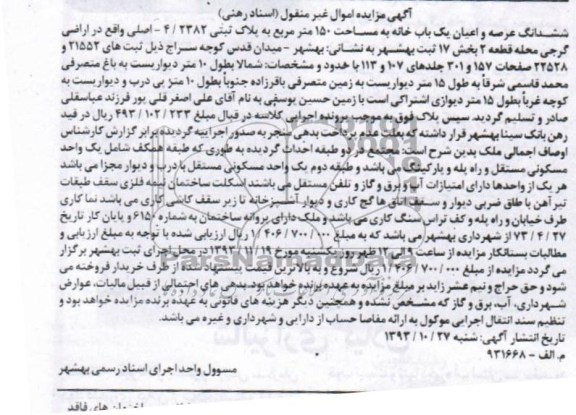 آگهی مزایده اموال غیر منقول (اسناد رهنی)
ششدانگ عرصه و اعیان یک باب خانه به مساحت ۱۵۰ متر مربع به پلاک ثبتی ۲۳۸۲ / ۴ - اصلی واقع در اراضی
گرجی محله قطعه ۲ بخش ۱۷ ثبت بهشهر به نشانی: بهشهر - میدان قدس کوچه سراج ذیل ثبت های ۲۱۵۵۲ و
۲۲۵۲۸ صفحات ۱۵۷ و ۳۰۱ جلدهای ۱۰۷ و ۱۱۳ با حدود و مشخصات: شمالا بطول ۱۰ متر دیواریست به باغ متصرفی
محمد قاسمی شرقاً به طول ۱۵ متر دیواریست به زمین متصرفی باقرزاده جنوباً بطول ۱۰ متر پی درب و دیواریست به
کوچه غرباً بطول ۱۵ متر دیوازی اشتراکی است با زمین حسین یوسفی به نام آقای علی اصغر قلی پور فرزند عباسقلی
صادر و تسلیم گردید. سپس پلاک فوق به موجب پرونده اجرایی کلاسه در قبال مبلغ ۲۳۳ / ۱۰۲ / ۴۹۳ ریال در قید
رهن بانک سینا بهشهر قرار داشته که بعلت عدم پرداخت بدهی منجر به صدور اجراییه گردیده برابر گزارش کارشناس
اوصاف اجمالی ملک بدین شرح است: مجتمع در دو طبقه احداث گردیده به طوری که طبقه همکف شامل یک واحد
مسکونی مستقل و راه پله و پارکینگ می باشد و طبقه دوم یک واحد مسکونی مستقل با درب و دیوار مجزا می باشد
هر یک از واحدها دارای امتیازات آب و برق و گاز و تلفن مستقل می باشند. اسکلت ساختمان نیمه فلزی سقف طبقات
تیرآهن با طاق ضربی دیوار و سقف اتاق ها گچ کاری و دیوار آشپزخانه تا زیر سقف کاشی کاری می باشد نما کاری
طرف خیابان و راه پله و کف تراس سنگ کاری می باشد و ملک دارای پروانه ساختمان به شماره ۶۱۵۰ و پایان کار تاریخ
۲۷ / ۴ / ۷۳ از شهرداری بهشهر می باشد که به مبلغ ۰۰۰ / ۷۰۰ / ۴۰۶ / ۱ ریال ارزیابی شده با توجه به مبلغ ارزیابی و
مطالبات بستانکار مزایده از ساعت ۹ الی ۱۲ ظهر روز یکشنبه مورخ ۱۹ / ۱۱ / ۱۳۹۳ در محل اجرای ثبت بهشهر برگزار
می گردد مزایده از مبلغ ۰۰۰ / ۷۰۰ / ۴۰۶ / ۱ ریال شروع و به بالاترین قیمت پیشنهاد شده از طرف خریدار فروخته می
شود و حق حراج و نیم عشر زاید بر مبلغ مزایده به عهده برنده خواهد بود. بدهی های احتمالی از قبیل مالیات، عوارض
شهرداری، آب، برق و گاز که مشخص نشده و همچنین دیگر هزینه های قانونی به عهده برنده مزایده خواهد بود و
تنظیم سند انتقال اجرایی موکول به ارائه مفاصا حساب از دارایی و شهرداری و غیره می باشد.
تاریخ انتشار آگهی: شنبه ۲۷ / ۱۰ / ۱۳۹۳
م. الف - ۹۳۱۶۶۸
مسوول واحد اجرای اسناد رسمی بهشهر